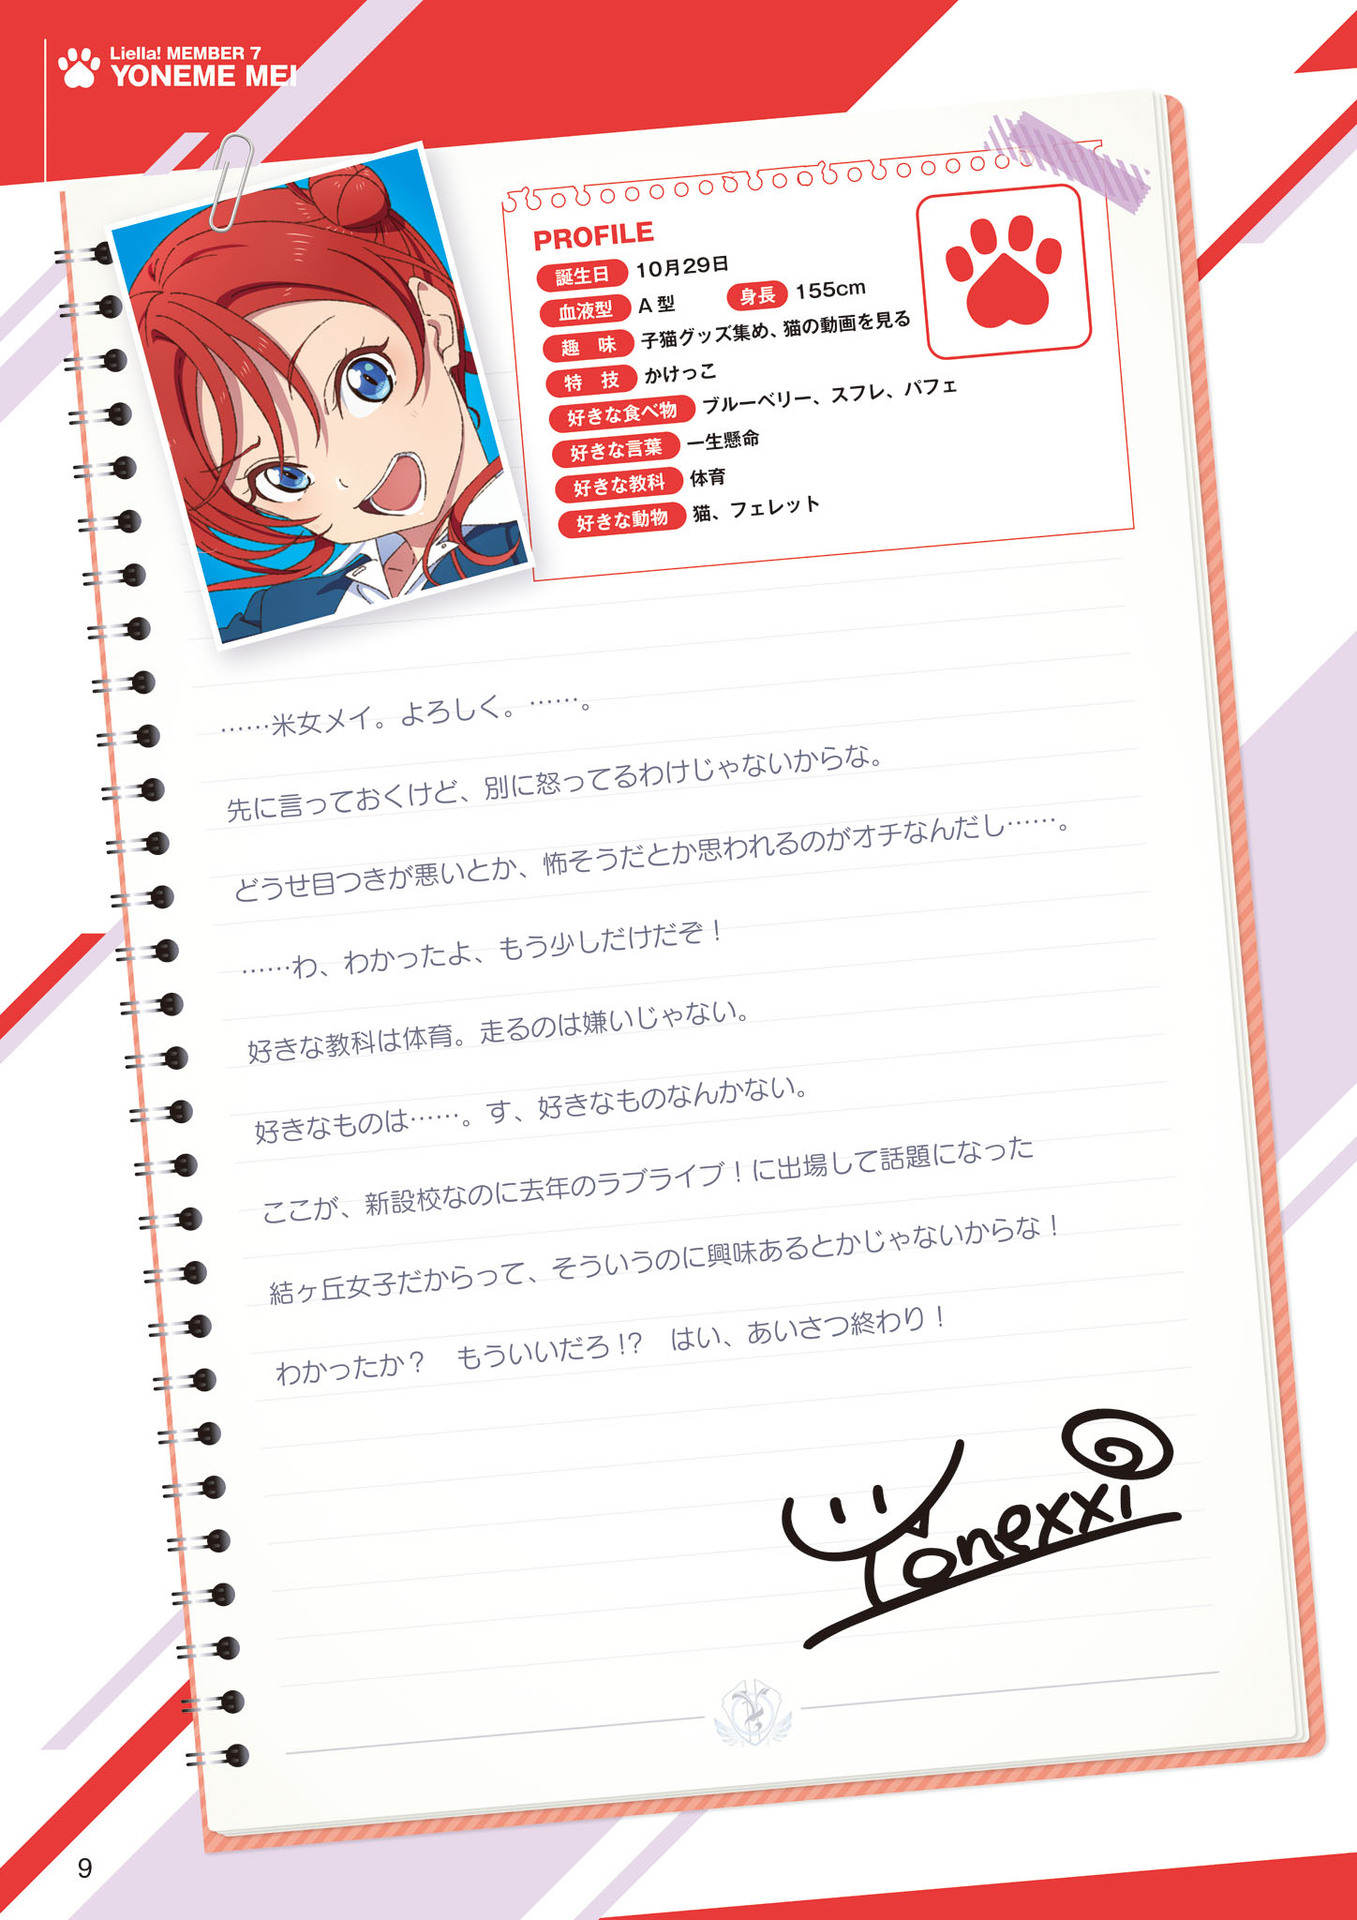 Liella! MEMBER 7
YONEME MEI
PROFILE
誕生日 10月29日
血液型 A型 身長 155cm
趣 味 子猫グッズ集め、猫の動画を見る
特 技 かけっこ
好きな食べ物 ブルーベリー、スフレ、パフェ
好きな言葉 一生懸命
好きな教科 体育
好きな動物 猫、フェレット
……米女メイ。よろしく。……。
先に言っておくけど、別に怒ってるわけじゃないからな。
どうせ目つきが悪いとか、怖そうだとか思われるのがオチなんだし……。
……わ、わかったよ、もう少しだけだぞ！
好きな教科は体育。走るのは嫌いじゃない。
好きなものは……。す、好きなものなんかない。
ここが、新設校なのに去年のラブライブ！に出場して話題になった
結ヶ丘女子だからって、そういうのに興味あるとかじゃないからな！
わかったか？　もういいだろ!?　はい、あいさつ終わり！
Yonexxi
9